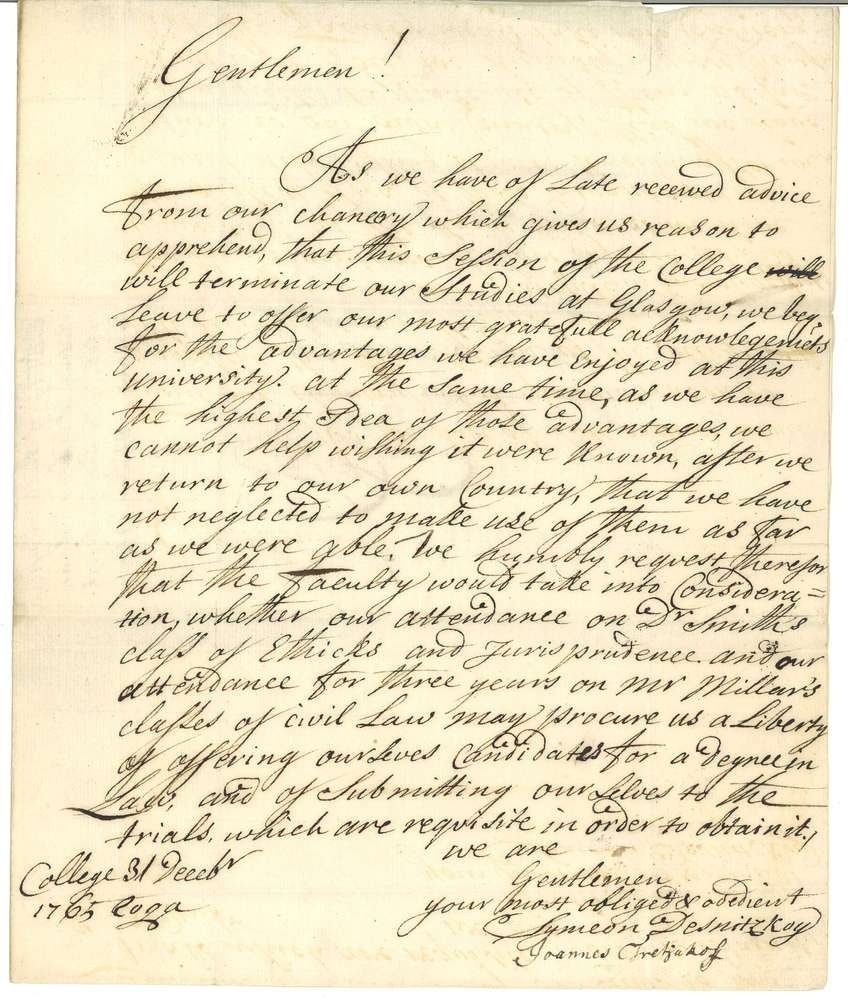 Gentlemen!
As we have of Late received advice
from our chancery which gives us reason to
apprehend, that this Session of the College will
will terminate our Studies at Glasgow, we beg
Leave to offer our most gratefull acknowlegements
for the advantages we have Enjoyed at this
university. at the same time, as we have
the highest Idea of those advantages, we
cannot help wishing it were Known, after we
return to our own Country, that we have
not neglected to make use of them as far
as we were able. We humbly request therefor
that the Faculty would take into Considera=
tion, whether our attendance on Dr Smith's
class of Ethicks and Jurisprudence. and our
attendance for three years on Mr Millar's
classes of civil Law may procure us a Liberty
of offering ourselves Candidates for a degree in
Law, and of Submitting our Selves to the
trials, which are requisite in order to obtain it./
we are
Gentlemen
your most obliged & obedient
Symeon Desnitzkoy
Joannes Tretjakof
College 31 Decebr
1765